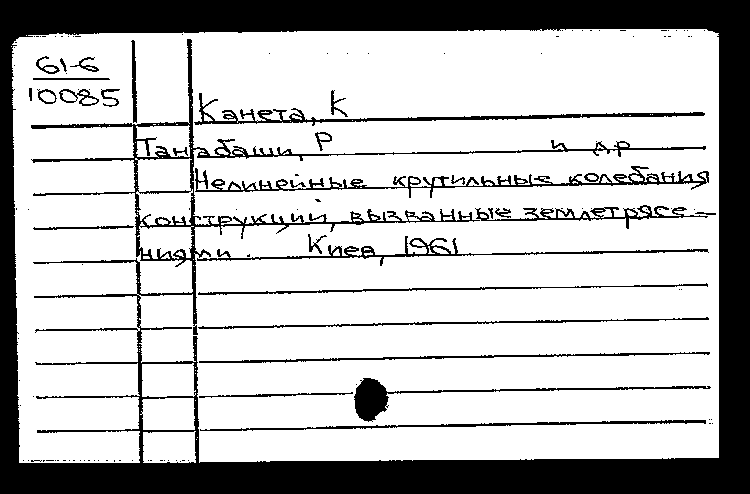 61-6
10085
Канета, К
Танабаши, Р и др
Нелинейные крутильные колебания
конструкций, вызванные землетрясе-
ниями. Киев, 1961